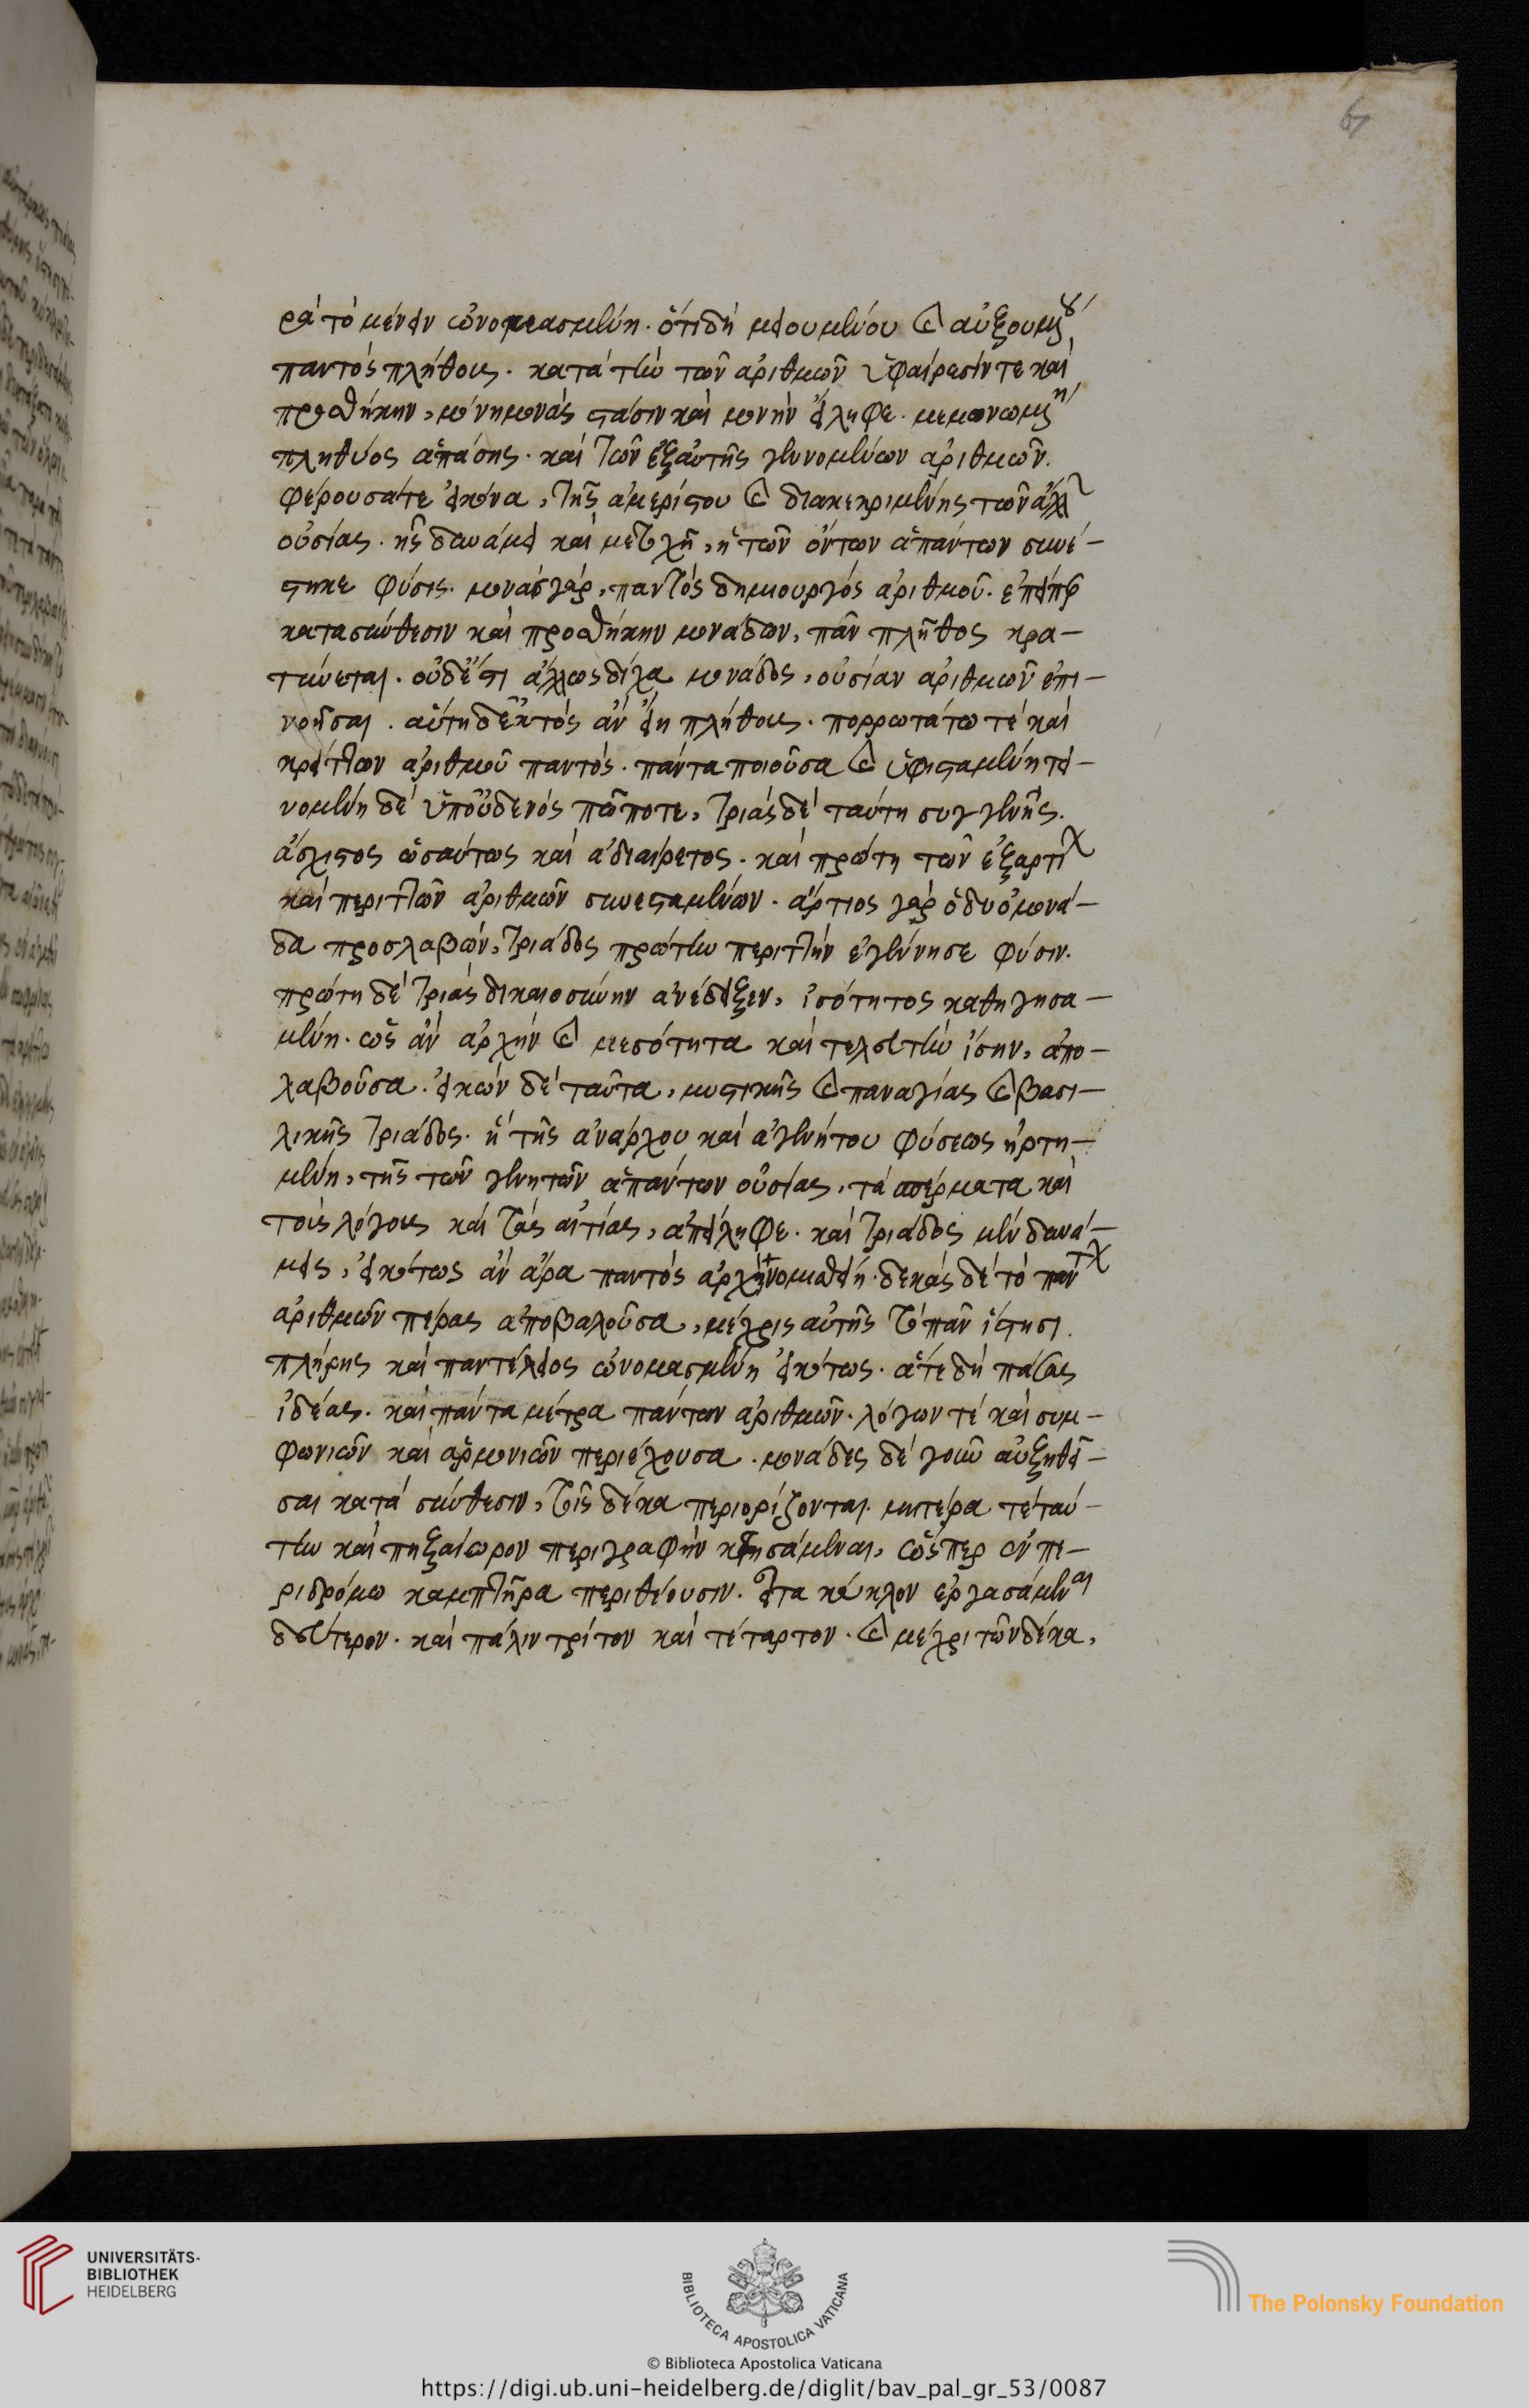 67
ρὰ τὸ μένειν ὠνομασμένη. ὅτι δὴ μειουμένου καὶ αὐξουμένου
παντὸς πλήθους. κατὰ τὴν τῶν ἀριθμῶν ὑφαίρεσίν τε καὶ
προσθήκην, μόνη μονὰς στάσιν καὶ μονὴν εἴληφε. μεμονωμένη
πληθύος ἁπάσης. καὶ τῶν ἐξ αὐτῆς γεννομένων ἀριθμῶν.
φέρουσά τε εἰκόνα, τῆς ἀμερίστου καὶ διακεκριμένης τῶν ἄλλων
οὐσίας. ἧς δυνάμει καὶ μετοχῇ, ἡ τῶν ὄντων ἁπάντων συνέ-
στηκε φύσις. μονὰς γὰρ, παντὸς δημιουργὸς ἀριθμοῦ. ἐπείπερ
κατα σύνθεσιν καὶ προσθήκην μονάδων, πᾶν πλῆθος κρα-
τύνεται. οὐδ' ἔστι ἄλλως δίχα μονάδος, οὐσίαν ἀριθμῶν ἐπι-
νοῆσαι. αὕτη δ' ἐκτὸς ἂν εἴη πλήθους. πορρωτάτω τὲ καὶ
κρείττων ἀριθμοῦ παντός. πάντα ποιοῦσα καὶ ὑφισταμένη τει-
νομένη δὲ ὑπ' οὐδενὸς πώποτε, τριὰς δὲ ταύτῃ συγγενής.
ἄσχιστος ὡσαύτως καὶ ἀδιαίρετος. καὶ πρώτη τῶν ἐξ αρτί
καὶ περιττῶν ἀριθμῶν συνεσταμένων. ἄρτιος γὰρ ὁ δυὸ μονά-
δα προσλαβὼν, τριάδος πρώτην περιττὴν ἐγέννησε φύσιν.
πρώτη δὲ τριὰς δικαιοσύνην ἀνέδειξεν, ἰσότητος καθηγησα-
μένη. ὡς ἂν ἀρχὴν καὶ μεσότητα καὶ τελευτὴν ἴσην, ἀπο-
λαβοῦσα. εἰκὼν δὲ ταῦτα, μυστικῆς καὶ παναγίας καὶ βασι-
λικῆς τριάδος. ἣ τῆς ἀνάρχου καὶ ἀγεννήτου φύσεως ἠρτη-
μένη, τῆς τῶν γεννητῶν ἁπάντων οὐσίας, τὰ σπέρματα καὶ
τοὺς λόγους καὶ τὰς αἰτίας, ἀπείληφε. καὶ τριάδος μὲν δυνά-
μεις, εἰκότως ἂν ἄρα παντὸς ἀρχὴ νομισθείη. δεκὰς δὲ τὸ παν
ἀριθμῶν πέρας ἀποβαλοῦσα, μέχρις αὐτῆς τὸ πᾶν ἵστησι.
πλήρης καὶ παντέλειος ὠνομασμένη εἰκότως. ἅτε δὴ πάσας
ἰδέας. καὶ πάντα μέτρα πάντων ἀριθμῶν. λόγων τὲ καὶ συμ-
φωνιῶν καὶ ἁρμονιῶν περιέχουσα. μονάδες δὲ γοῦν αὐξηθεῖ-
σαι κατὰ σύνθεσιν, τοῖς δέκα περιορίζονται. μητέρα τὲ ταύ-
την καὶ πηξαίωρον περιγραφὴν κτησάμεναι, ὥσπερ οὖν πε-
ριδρόμω καμπτῆρα περιθέουσιν. εἶτα κύκλον ἐργασάμεναι
δεύτερον. καὶ πάλιν τρίτον καὶ τέταρτον. καὶ μέχρι τῶν δέκα,
UNIVERSITÄTS-
BIBLIOTHEK
HEIDELBERG
BIBLIOTECA APOSTOLICA VATICANA
The Polonsky Foundation
© Biblioteca Apostolica Vaticana
https://digi.ub.uni-heidelberg.de/diglit/bav_pal_gr_53/0087